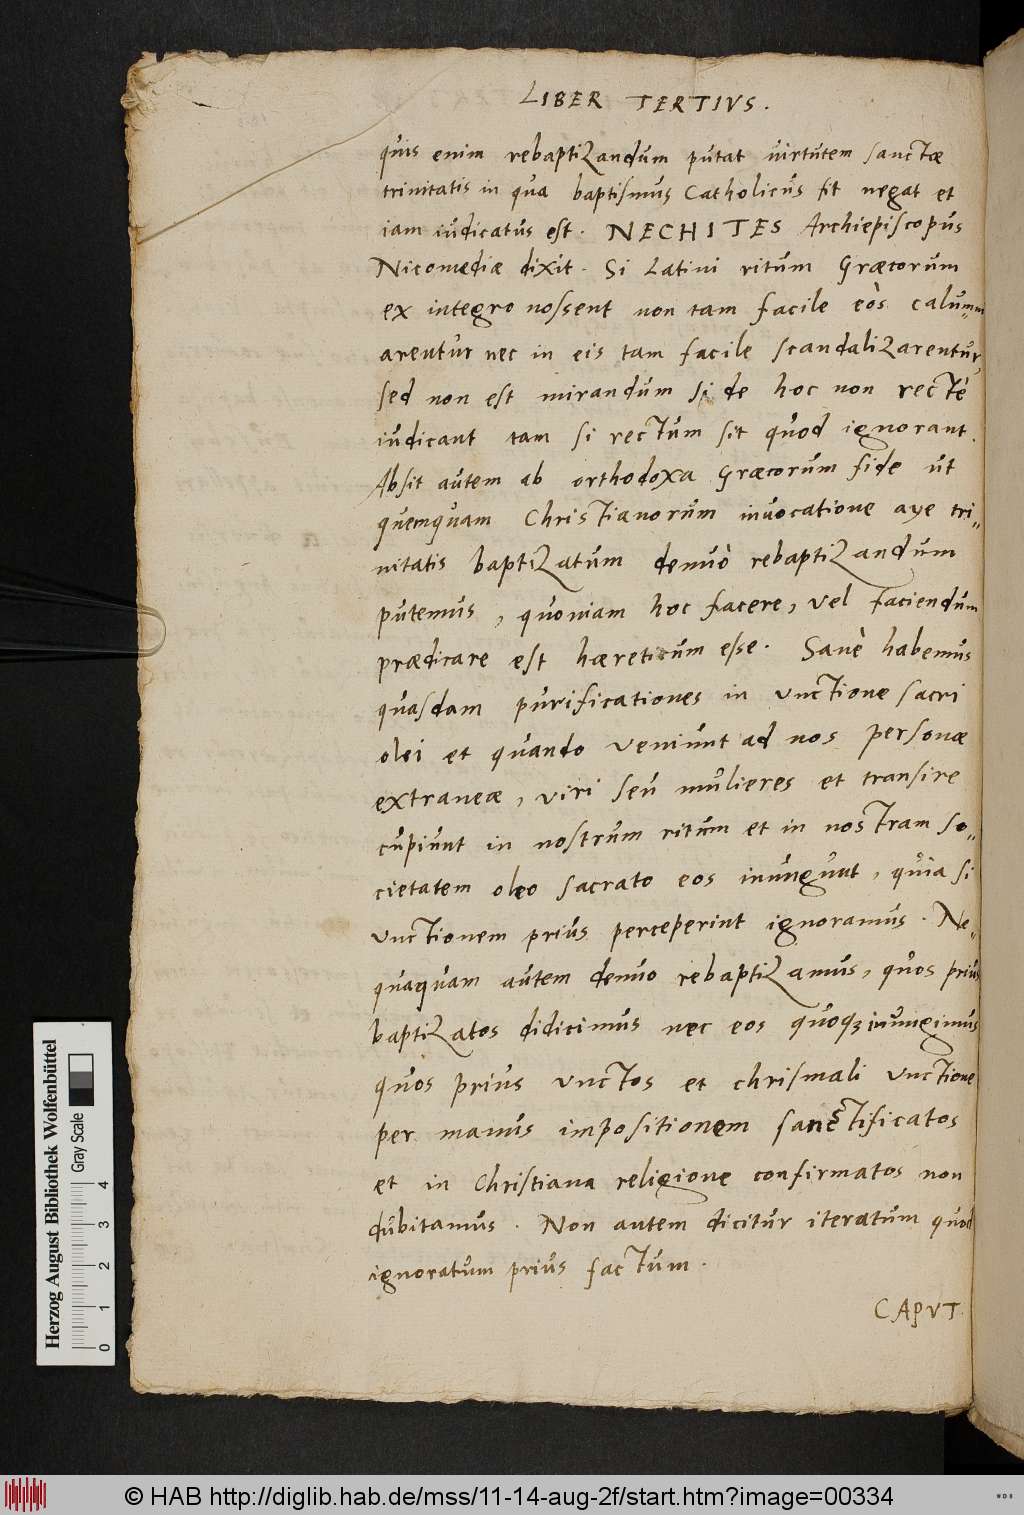 LIBER TERTIVS.
quis enim rebaptizandum putat uirtutem sanctæ
trinitatis in qua baptismus Catholicus fit negat et
iam iudicatus est. NECHITES Archiepiscopus
Nicomediæ dixit. Si Latini ritum Græcorum
ex integro nossent non tam facile eòs calum=
arentur nec in eis tam facile scandalizarentur,
sed non est mirandum si de hoc non rectè
iudicant tam si rectum sit quod ignorant.
Absit autem ab orthodoxa Græcorum fide ut
quemquam Christianorum inuocatione aye tri=
nitatis baptizatum denuò rebaptizandum
putemus, quoniam hoc facere, vel faciendum
prædicare est hæreticum esse. Sanè habemus
quasdam purificationes in vnctione sacri
olei et quando veniunt ad nos personæ
extraneæ, viri seu mulieres et transire
cupiunt in nostrum ritum et in nostram so=
cietatem oleo sacrato eos inungunt, quia si
vnctionem prius perceperint ignoramus. Ne=
quaquam autem denuo rebaptizamus, quos prius
baptizatos didicimus nec eos quoqꝫ inungimus
quos prius vnctos et chrismali vnctione
per manus impositionem sanctificatos
et in Christiana religione confirmatos non
dubitamus. Non autem dicitur iteratum quod
ignoratum prius factum.
CAPVT.
Herzog August Bibliothek Wolfenbüttel
Gray Scale
0 1 2 3 4
© HAB http://diglib.hab.de/mss/11-14-aug-2f/start.htm?image=00334